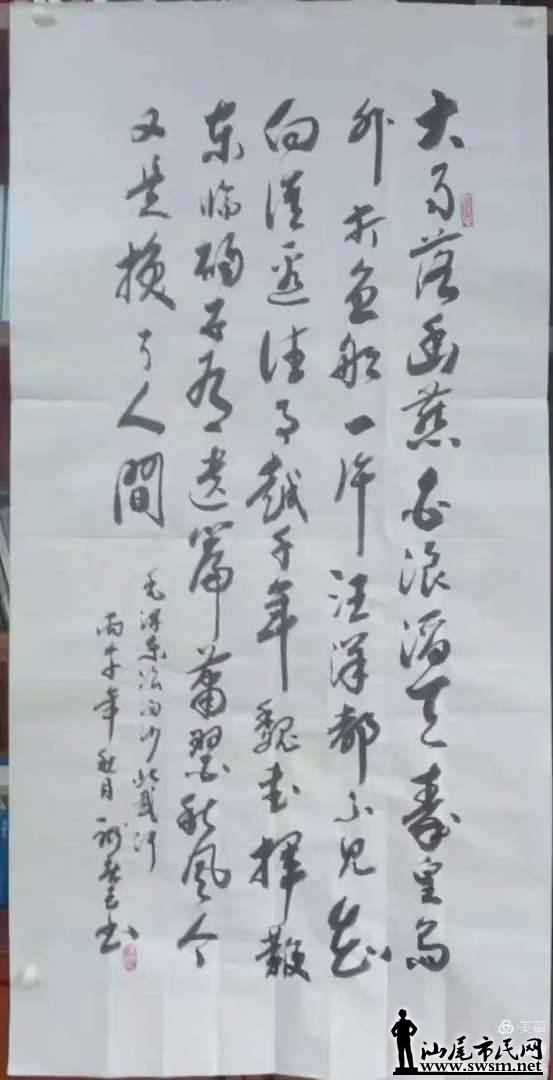 大雨落幽燕白浪滔天秦皇岛
外打鱼船一片汪洋都不见知
向谁边往事越千年魏武挥鞭
东临碣石有遗篇萧瑟秋风今
又是换了人間
毛泽东浪淘沙北戴河
丙午年秋月
书
美篇
汕尾市民网
www.swsm.net